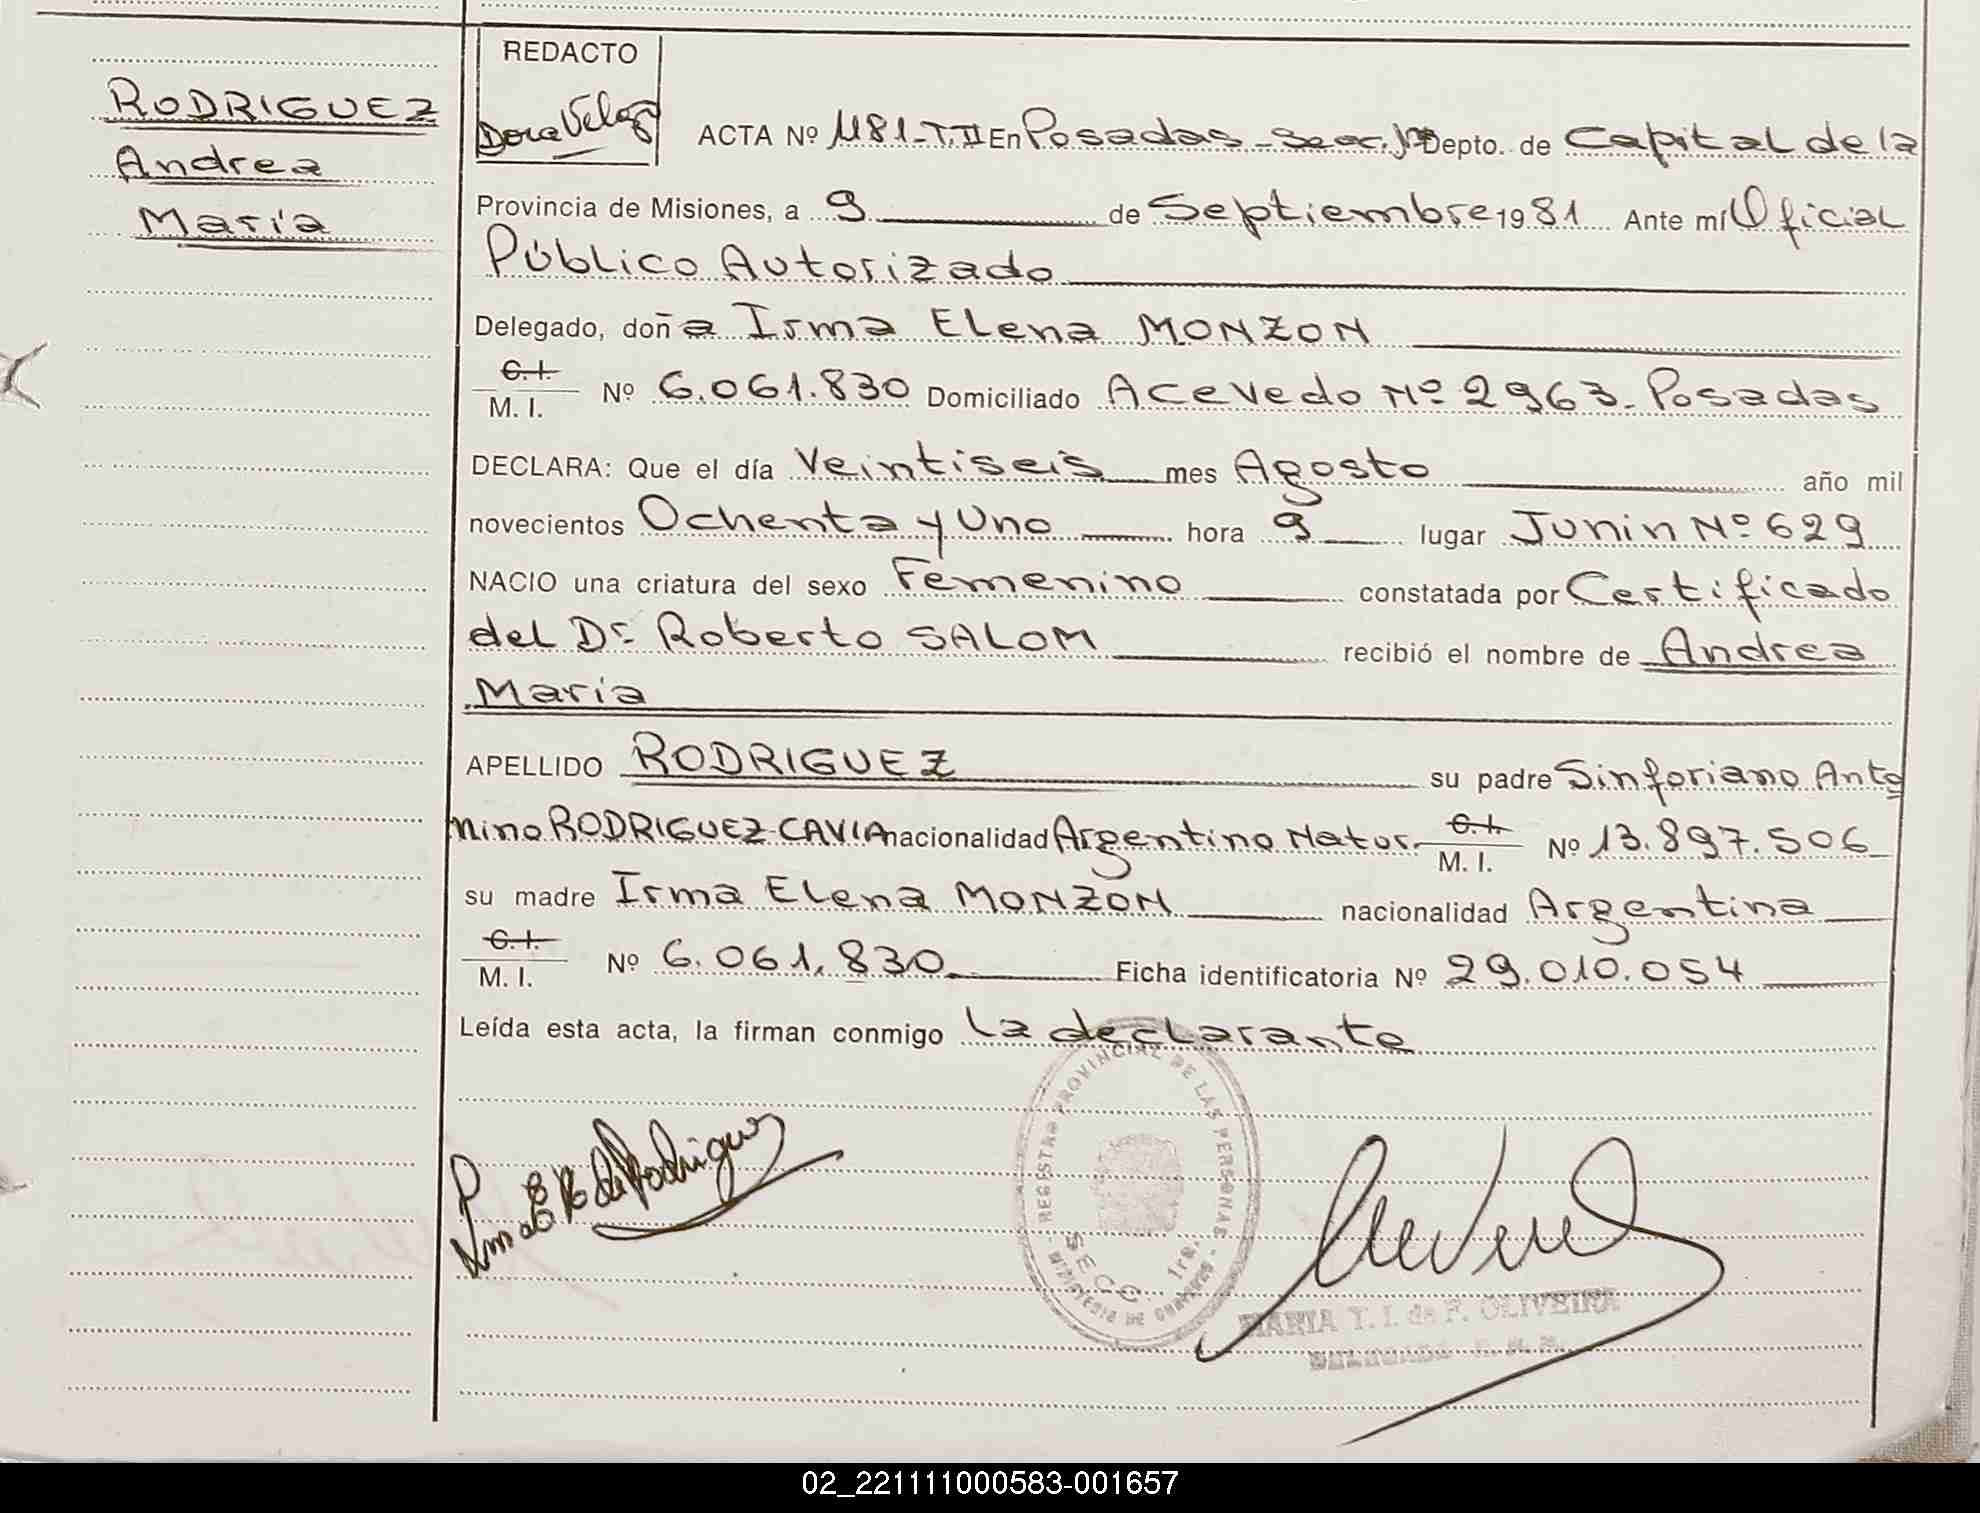 REDACTO
RODRIGUEZ
Andrea
María
Dora Veloz
ACTA Nº 1181-T.II En Posadas - Secc. 1ra Depto. de Capital de la
Provincia de Misiones, a 9 de Septiembre 1981 Ante mí Oficial
Público Autorizado
Delegado, doña Irma Elena MONZON
C. I.
M. I. Nº 6.061.830 Domiciliado Acevedo Nº 2963. Posadas
DECLARA: Que el día Veintiseis mes Agosto año mil
novecientos Ochenta y Uno hora 9 lugar Junin Nº 629
NACIO una criatura del sexo Femenino constatada por Certificado
del Dr. Roberto SALOM recibió el nombre de Andrea
María
APELLIDO RODRIGUEZ su padre Sinforiano Anto
nino RODRIGUEZ CAVIA nacionalidad Argentino Natur. C. I. M. I. Nº 13.897.506
su madre Irma Elena MONZON nacionalidad Argentina
C. I.
M. I. Nº 6.061.830 Ficha identificatoria Nº 29.010.054
Leída esta acta, la firman conmigo la declarante
REGISTRO PROVINCIAL DE LAS PERSONAS
SECC. 1ra.
MINISTERIO DE GOBIERNO
MARIA T. I. de F. OLIVEIRA
02_221111000583-001657